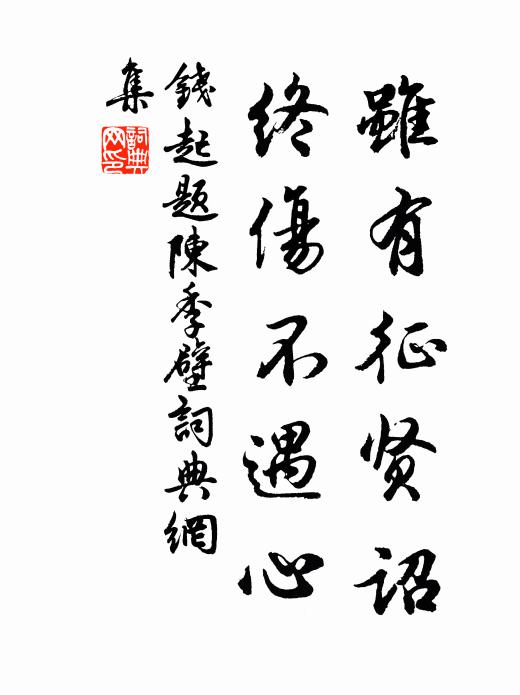 雖有征贤詔
終傷不遇心
錢起題陳季壁詞典網
集
詞典
网印